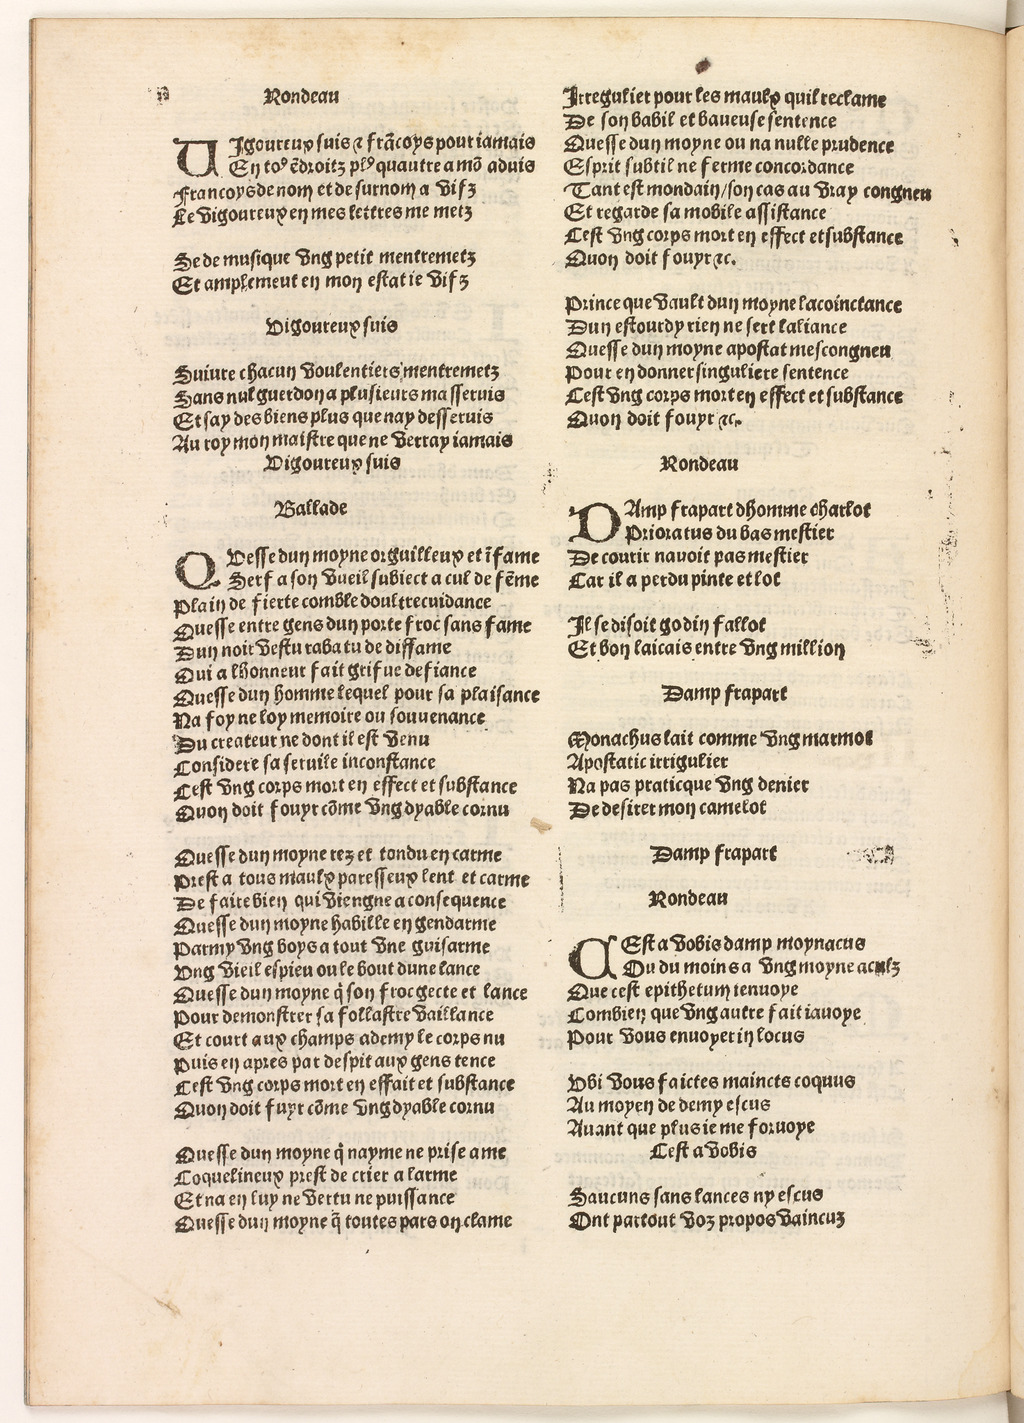 Rondeau
VIgoureux suis & frãcoys pour iamais
En toꝰ ẽdroitz plꝰ quautre a mõ aduis
Francoys de nom et de surnom a vifz
Le vigoureux en mes lettres me metz
Se de musique vng petit mentremetz
Et amplement en mon estat ie vifz
Vigoureux suis
Suiure chacun voulentiers mentremetz
Sans nul guerdon a plusieurs ma sseruis
Et say des biens plus que nay desseruis
Au roy mon maistre que ne verray iamais
Vigoureux suis
Ballade
QVesse dun moyne orguilleux et ĩfame
Serf a son vueil subiect a cul de fẽme
Plain de fierte comble doultrecuidance
Quesse entre gens dun porte froc sans fame
Dun noir vestu rabatu de diffame
Qui a lhonneur fait grif ue defiance
Quesse dun homme lequel pour sa plaisance
Na foy ne loy memoire ou souuenance
Du createur ne dont il est venu
Considere sa seruile inconstance
Cest vng corps mort en effect et substance
Quon doit fouyr cõme vng dyable cornu
Quesse dun moyne rez et tondu en carme
Prest a tous maulx paresseux lent et carme
De faire bien qui viengne a consequence
Quesse dun moyne habille en gendarme
Parmy vng boys a tout vne guisarme
Vng vieil espieu ou le bout dune lance
Quesse dun moyne q̃ son froc gecte et lance
Pour demonstrer sa follastre vaillance
Et court aux champs ademy le corps nu
Puis en apres par despit aux gens tence
Cest vng corps mort en effait et substance
Quon doit fuyr cõme vng dyable cornu
Quesse dun moyne q̃ nayme ne prise ame
Coquelineux prest de crier a larme
Et na en luy ne vertu ne puissance
Quesse dun moyne q̃ toutes pars on clame
Irregulier pour les maulx quil reclame
De son babil et baueuse sentence
Quesse dun moyne ou na nulle prudence
Esprit subtil ne ferme concordance
Tant est mondain/son cas au vray congneu
Et regarde sa mobile assistance
Cest vng corps mort en effect et substance
Quon doit fouyr &c.
Prince que vault dun moyne lacoinctance
Dun estourdy rien ne sert laliance
Quesse dun moyne apostat mescongneu
Pour en donner singuliere sentence
Cest vng corps mort en effect et substance
Quon doit fouyr &c.
Rondeau
DAmp frapart dhomme charlot
Prioratus du bas mestier
De courir nauoit pas mestier
Car il a perdu pinte et lot
Il se disoit godin fallot
Et bon laicais entre vng million
Damp frapart
Monachus lait comme vng marmot
Apostatic irrigulier
Na pas praticque vng denier
De desirer mon camelot
Damp frapart
Rondeau
CEst a vobis damp moynacus
Ou du moins a vng moyne aculz
Que cest epithetum ienuoye
Combien que vng autre fait iauoye
Pour vous enuoyer in locus
Vbi vous faictes maincts coquus
Au moyen de demy escus
Auant que plus ie me foruoye
Cest a vobis
Saucuns sans lances ny escus
Ont partout voz propos vaincuz